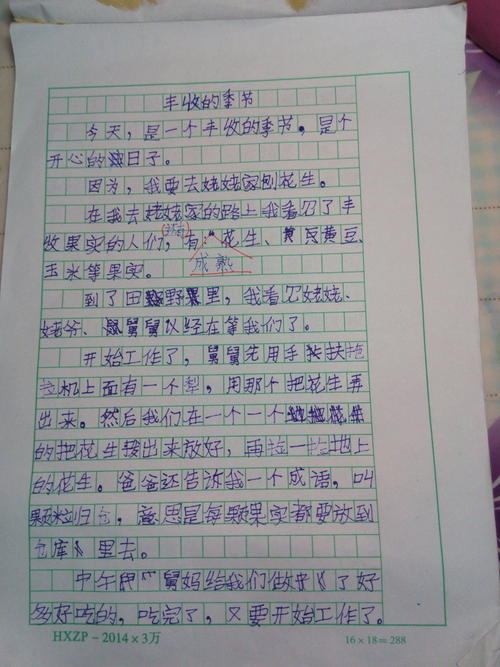 丰收的季节
今天，是一个丰收的季节，是个
开心的日子。
因为，我要去姥姥家刨花生。
在我去姥姥家的路上我看见了丰
收果实的人们，有花生、黄豆、
成熟
玉米等果实。
到了田野里，我看见姥姥、
姥爷、舅舅以经在等我们了。
开始工作了，舅舅先用手扶拖
拉机上面有一个犁，用那个把花生弄
出来。然后我们在一个一个
的把花生拔出来放好，再捡一捡地上
的花生。爸爸还告诉我一个成语，叫
颗粒归仓，意思是每颗果实都要放到
仓库里去。
中午舅妈给我们做了好
多好吃的，吃完了，又要开始工作了。
HXZP-2014×3万 16×18=288